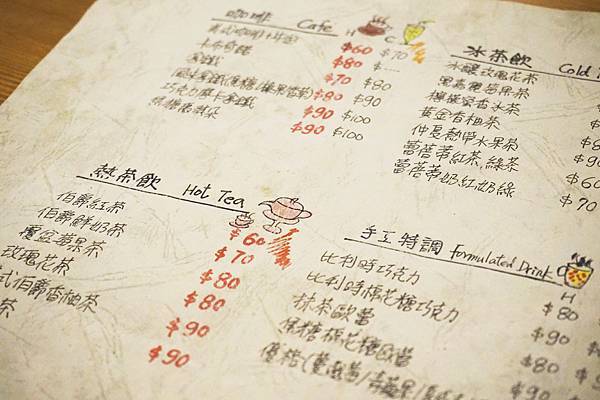 咖啡 Cafe H C
$60 $70
卡布奇諾 $80 $---
拿鐵 $70 $80
風味拿鐵(焦糖/榛果香草) $80 $90
巧克力摩卡拿鐵 $90 $100
焦糖瑪琪朵 $90 $100
冰茶飲 Cold
冰釀玫瑰花茶
黑嘉麗莓果茶
檸檬蜜香冰茶
黃金香柚茶 $80
仲夏熱帶水果茶 $90
蕾蓓蒂紅茶,綠茶 $60
蕾蓓蒂奶紅.奶綠 $70
熱茶飲 Hot Tea
伯爵紅茶 $60
伯爵鮮奶茶 $70
蘋果茶 $80
玫瑰花茶 $80
式伯爵香柚茶 $90
茶 $90
手工特調 Formulated Drink C
H
比利時巧克力 $80
比利時棉花糖巧克力 $90
抹茶歐蕾 $80
焦糖棉花糖歐蕾 $90